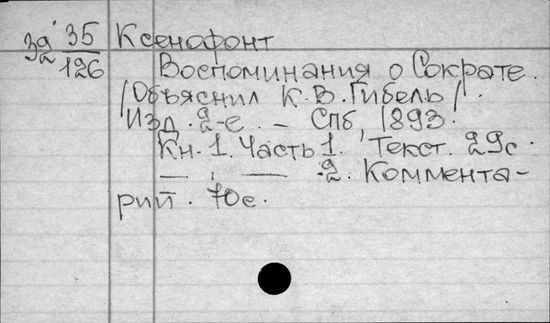 39 35/126 Ксенофонт
Воспоминания о Сократе.
/Объяснил К.В. Гибель/.
Изд. 2-е. – Спб, 1893.
Кн. 1. Часть 1. Текст. 29с.
— " — 2. Коммента-
рий. 70с.